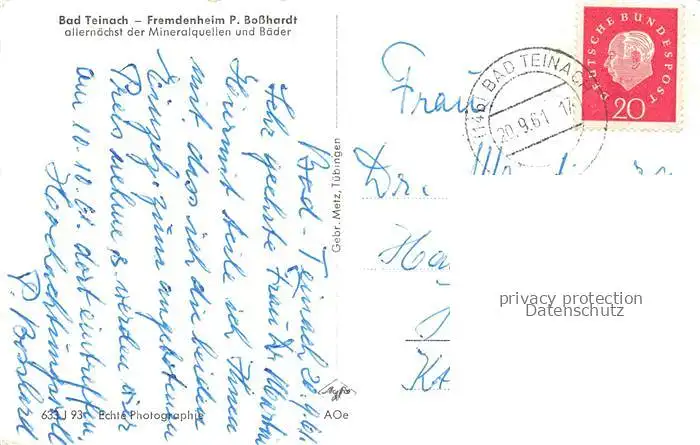 Bad Teinach – Fremdenheim P. Boßhardt
allernächst der Mineralquellen und Bäder
Bad-Teinach 20.9.61
Sehr geehrte Frau Dr. Martin
Hiermit teile ich Ihnen
mit dass ich die beiden
Einzelz. zum angebotenen
Preis nehme & werden wir
am 10.10.61. dort eintreffen.
Hochachtungsvoll
P. Bosshard
635 J 93 Echte Photographie
AOe
Gebr. Metz, Tübingen
DEUTSCHE BUNDESPOST
20
(14b) BAD TEINACH
20.9.61 17
Frau
Dr.
privacy protection
Datenschutz